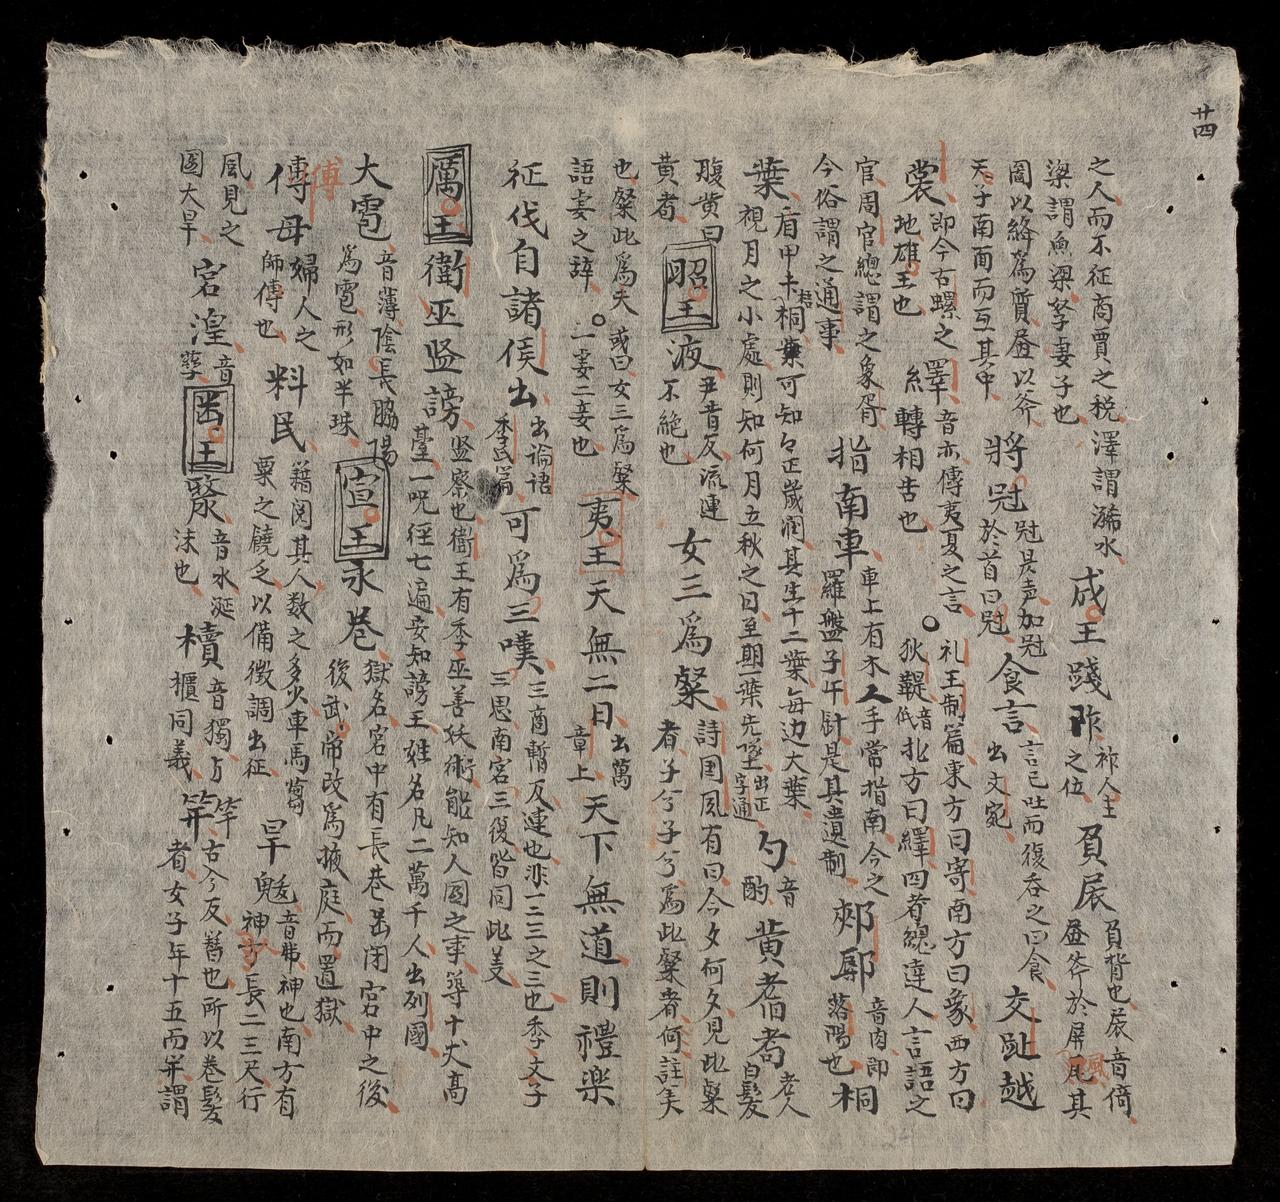 廿四
之人而不征商賈之税澤謂瀦水
梁謂魚梁孥妻子也
成王踐祚祚人主之位負扆負背也扆音倚
畫斧於屏風其
風
圖以絳爲質畫以斧
天子南面而立其中
將冠冠是声加冠於首曰冠食言言已吐而復吞之曰食
出文宛
交趾越
裳即今古螺之地雄王也
繹音亦傳夷夏之言
糸轉相告也
礼王制篇東方曰寄南方曰象西方曰
狄鞮音低北方曰繹四者總達人言語之
官周官總謂之象胥
今俗謂之通事
指南車車上有木人手常指南今之
羅盤子午針是其遺制
郟鄏音肉即洛陽也桐
葉看甲十梧桐葉可知知正歳潤其生十二葉每边大葉
視月之小處則知何月立秋之日至期一葉先墜出正字通
勺音酌黄耇耈老人白髮
腹黄曰
黄耇
昭王液尹昔反流連不絶也
女三爲粲詩国風有曰今夕何夕見此粲
者子兮子兮爲此粲者何註美
也粲此爲夫或曰女三爲粲
語妾之辞一妻二妾也
夷王天無二日出萬章上天下無道則禮楽
征伐自諸侯出出論語季氏篇可爲三嘆三商暫反連也非一二三之三也季文子
三思南宮三復皆同此美
厲王衛巫監謗監察也衛王有季巫善妖術能知人国之事築十丈高
臺一呪徑七遍妄知謗王姓名凡二萬千人出列國
大雹音薄陰長脇陽
爲雹形如半珠
宣王永巷獄名宮中有長巷出閉宮中之後
後武帝改爲掖庭而置獄
傳母婦人之師傅也
傅
料民藉閲其人数之多少車馬篤
粟之饒乏以備徴調出征
旱魃音弗神也南方有
神女長二三尺行
風見之
國大旱
宮湟音孽
幽王漦音水涎沫也
櫝音獨与櫃同義
笄笄古今反簪也所以巻髪
者女子年十五而笄謂